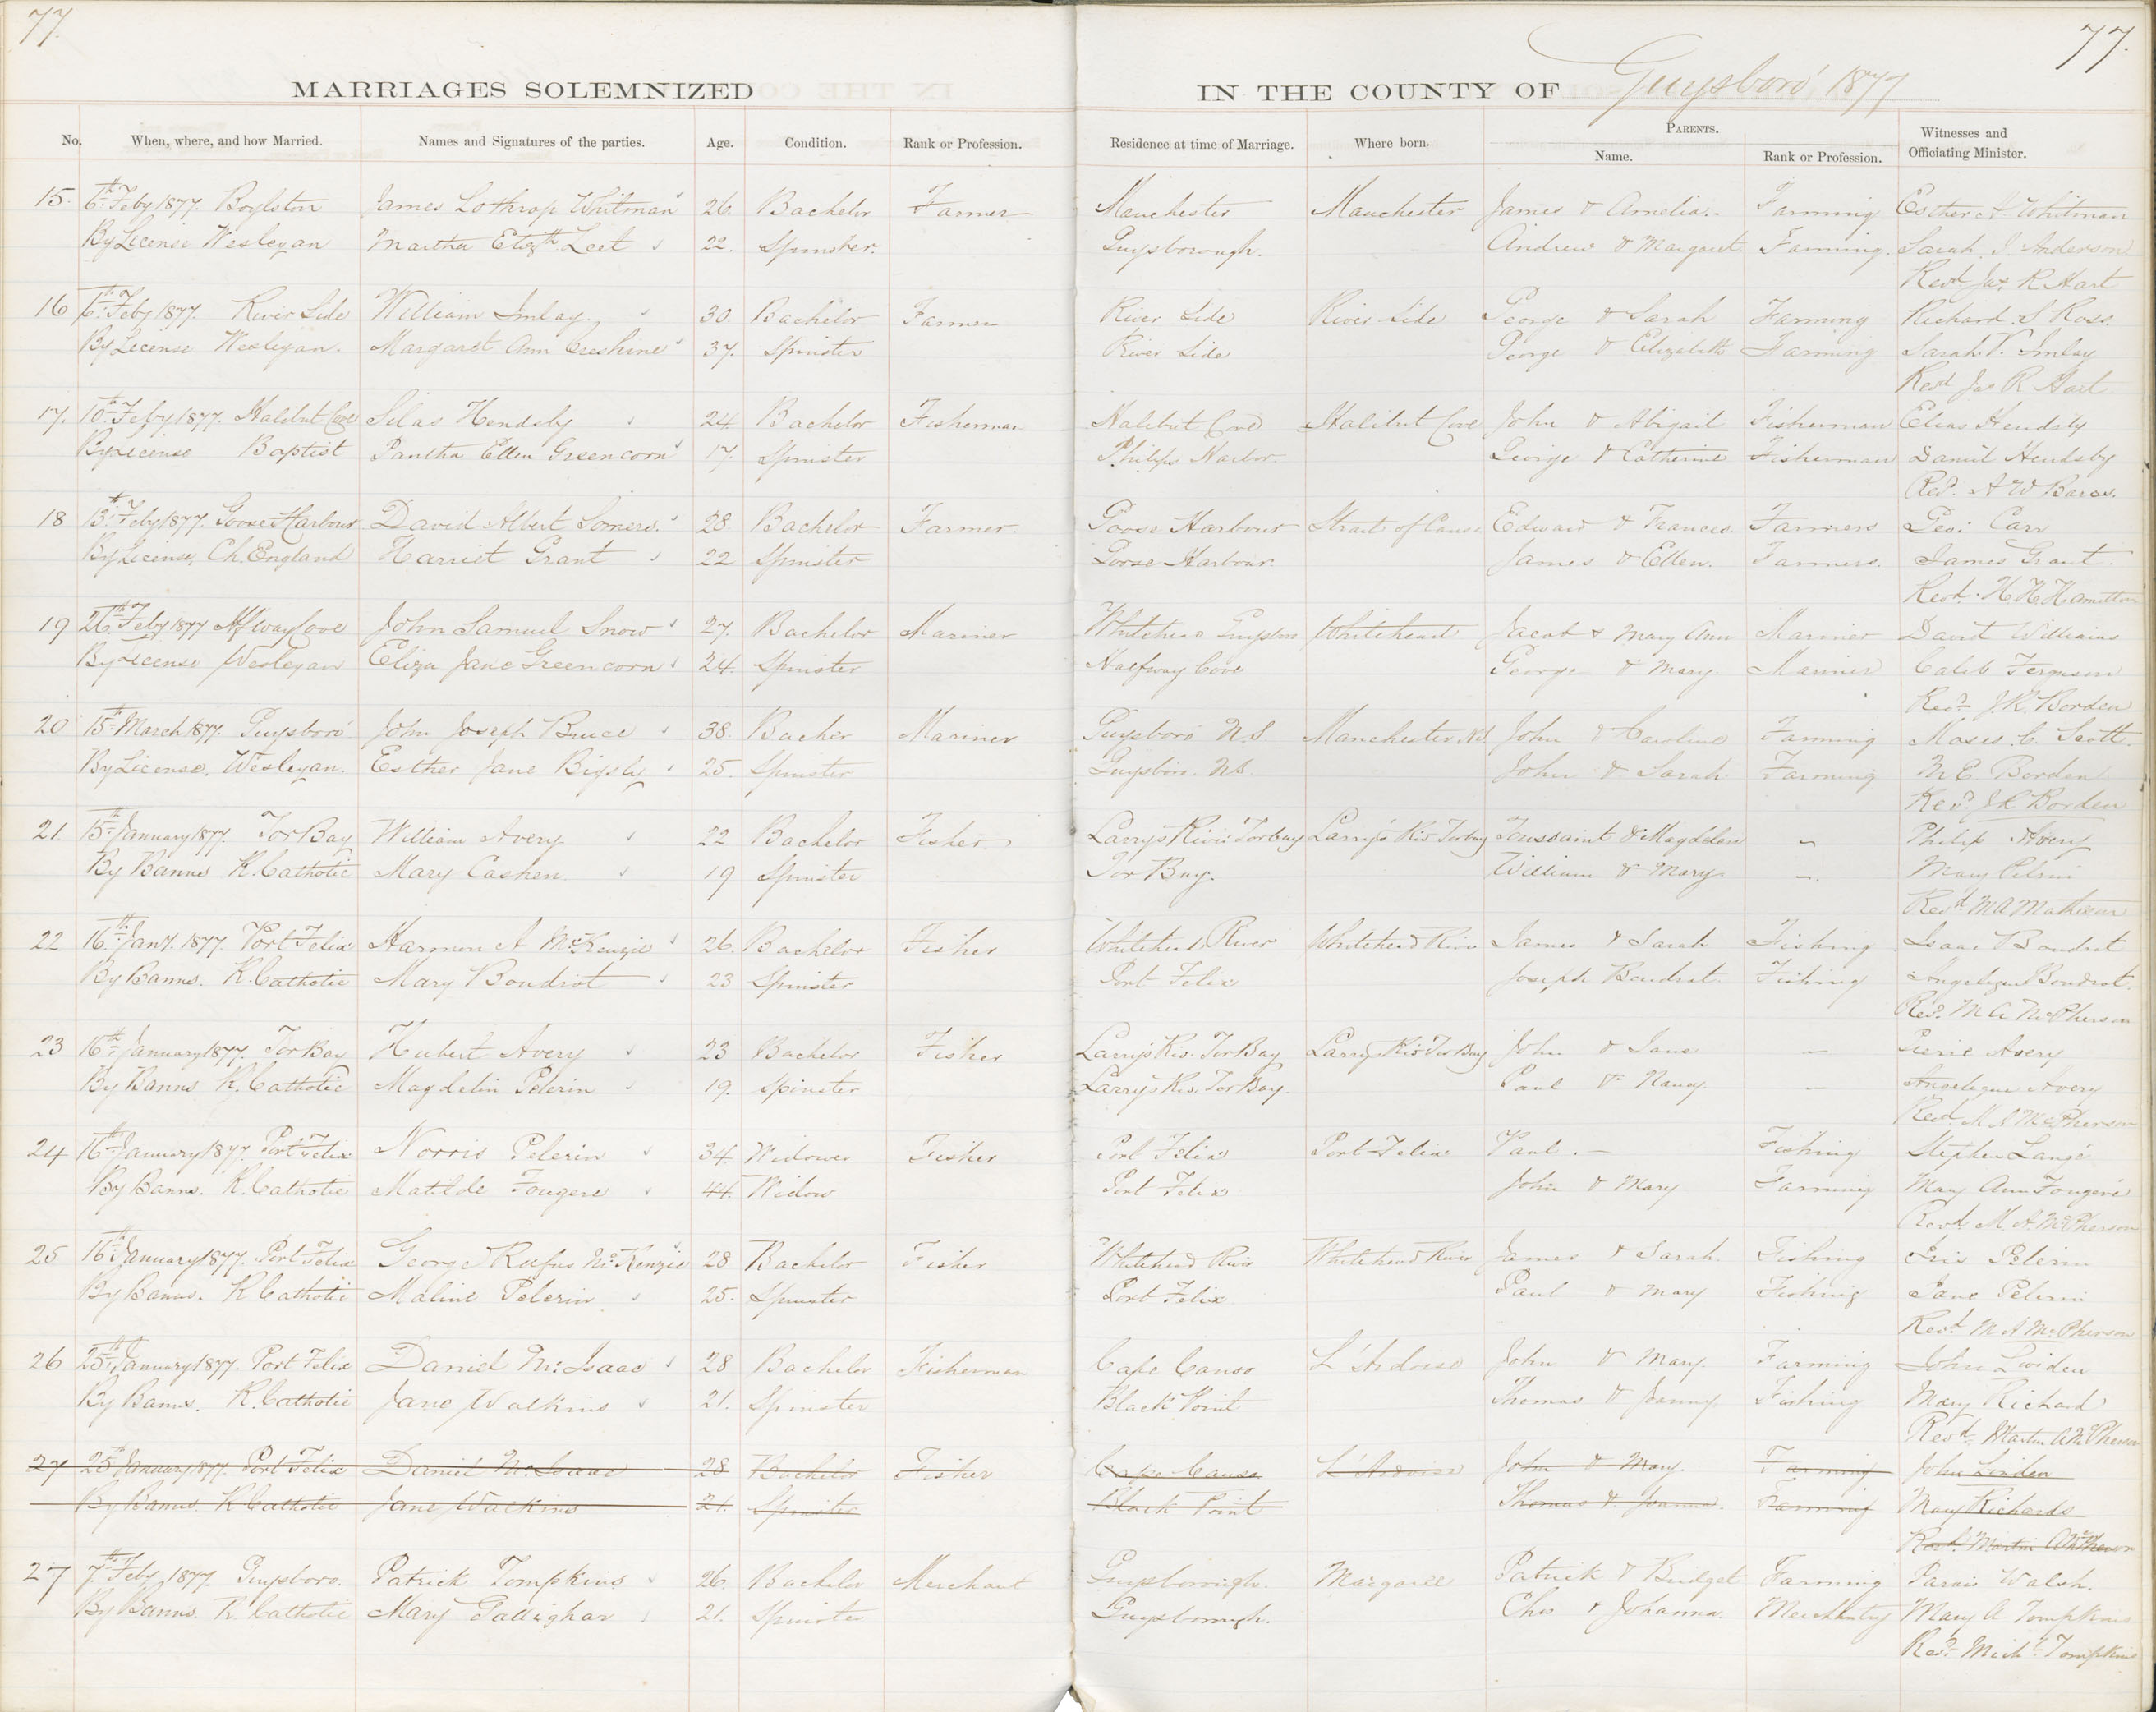 77.
77.
MARRIAGES SOLEMNIZED
IN THE COUNTY OF Guysboro' 1877
No. When, where, and how Married. Names and Signatures of the parties. Age. Condition. Rank or Profession. Residence at time of Marriage. Where born. PARENTS. Name. Rank or Profession. Witnesses and Officiating Minister.
15. 6th Feby 1877. Boylston James Lothrop Whitman 26. Bachelor Farmer Manchester Manchester James & Amelia. Farming Esther Whitman
By License Wesleyan Martha Elizth Leet 22. Spinster. Guysborough. Andrew & Margaret Farming. Sarah J. Anderson
Revd Jas R Hart
16 6th Feby 1877. River Side William Imlay 30. Bachelor Farmer River Side River Side George & Sarah Farming Richard S Ross.
By License Wesleyan. Margaret Ann Creshine 37. Spinster River Side George & Elizabeth Farming Sarah V. Imlay
Revd Jas R Hart
17. 10th Feby 1877. Halibut Cove Silas Hendsby 24 Bachelor Fisherman Halibut Cove Halibut Cove John & Abigail Fisherman Elias Hendsby
By License Baptist Pantha Ellen Greencorn 17. Spinster Philips Harbor. George & Catherine Fisherman Daniel Hendsby
Revd. A W Barss.
18 13th Feby 1877. Goose Harbour David Albert Somers. 28. Bachelor Farmer. Goose Harbour Strait of Canso Edward & Frances. Farmers Geo: Carr
By License, Ch. England Harriet Grant 22 Spinster Goose Harbour. James & Ellen. Farmers. James Grant.
Revd. H H Hamilton
19 26th Feby 1877 Hfway Cove John Samuel Snow 27. Bachelor Mariner Whitehead Guysboro Whitehead Jacob & Mary Ann Mariner David Williams
By License Wesleyan Eliza Jane Greencorn 24. Spinster Halfway Cove George & Mary. Mariner Caleb Ferguson
Revd J.R. Borden
20 15th March 1877. Guysboro' John Joseph Bruce 38. Bacher Mariner Guysboro N.S Manchester, NS John & Caroline Farming Moses C. Scott.
By License. Wesleyan. Esther Jane Bigsby 25. Spinster Guysboro. NS. John & Sarah Farming M. E. Borden
Revd. J R Borden
21. 15th January 1877. Tor Bay William Avery 22 Bachelor Fisher Larry's River Torbay Larry's Riv Torbay Toussaint & Magdelen – Philip Avery
By Banns R. Catholic Mary Cashen. 19 Spinster Tor Bay. William & Mary. –. Mary Pelrin
Revd M A Mathewson
22 16th Jany. 1877. Port Felix Harmon A McKenzie 26. Bachelor Fisher Whitehead River Whitehead River James & Sarah Fishing Isaac Boudrot
By Banns. R. Catholic Mary Boudrot 23 Spinster Port Felix Joseph Boudrot. Fishing Angelique Boudrot.
Revd. M A McPherson
23 16th January 1877. Tor Bay Hubert Avery 23 Bachelor Fisher Larry's Riv. Tor Bay Larry's Riv Tor Bay John & Jane – Avery
By Banns R. Catholic Magdelin Pelerin 19. Spinster Larry's Riv. Tor Bay. Paul & Nancy. – Angelique Avery
Revd. M A McPherson
24 16th January 1877. Port Felix Norris Pelerin 34. Widower Fisher Port Felix Port Felix Paul. – Fishing Stephen Langé
By Banns. R. Catholic Matilde Fougere 44. Widow Port Felix John & Mary Farming Mary Ann Fougere
Revd M A McPherson
25 16th January 1877. Port Felix George Rufus McKenzie 28 Bachelor Fisher Whitehead River Whitehead River James & Sarah. Fishing Pelerin
By Banns. R Catholic Maline Pelerin 25. Spinster Port Felix. Paul & Mary Fishing Jane Pelerin
Revd. M A McPherson
26 25th January 1877. Port Felix Daniel McIsaac 28 Bachelor Fisherman Cape Canso L'Ardoise John & Mary. Farming John Liniden
By Banns. R. Catholic Jane Walkins 21. Spinster Black Point Thomas & Joanny. Fishing Mary Richard
Revd. Martin A McPherson
27 25th January 1877. Port Felix Daniel McIsaac 28 Bachelor Fisher Cape Canso L'Ardoise John & Mary. Farming John Linden
By Banns. R Catholic Jane Walkins 21. Spinster Black Point Thomas & Joanna. Farming Mary Richards
Revd. Martin A McPherson
27 7th Feby 1877. Guysboro. Patrick Tompkins 26. Bachelor Merchant Guysborough. Margaree Patrick & Bridget Farming Walsh.
By Banns. R. Catholic Mary Gallighar 21. Spinster Guysborough. Chs & Johanna. Mary A Tompkins
Revd. Michl. Tompkins